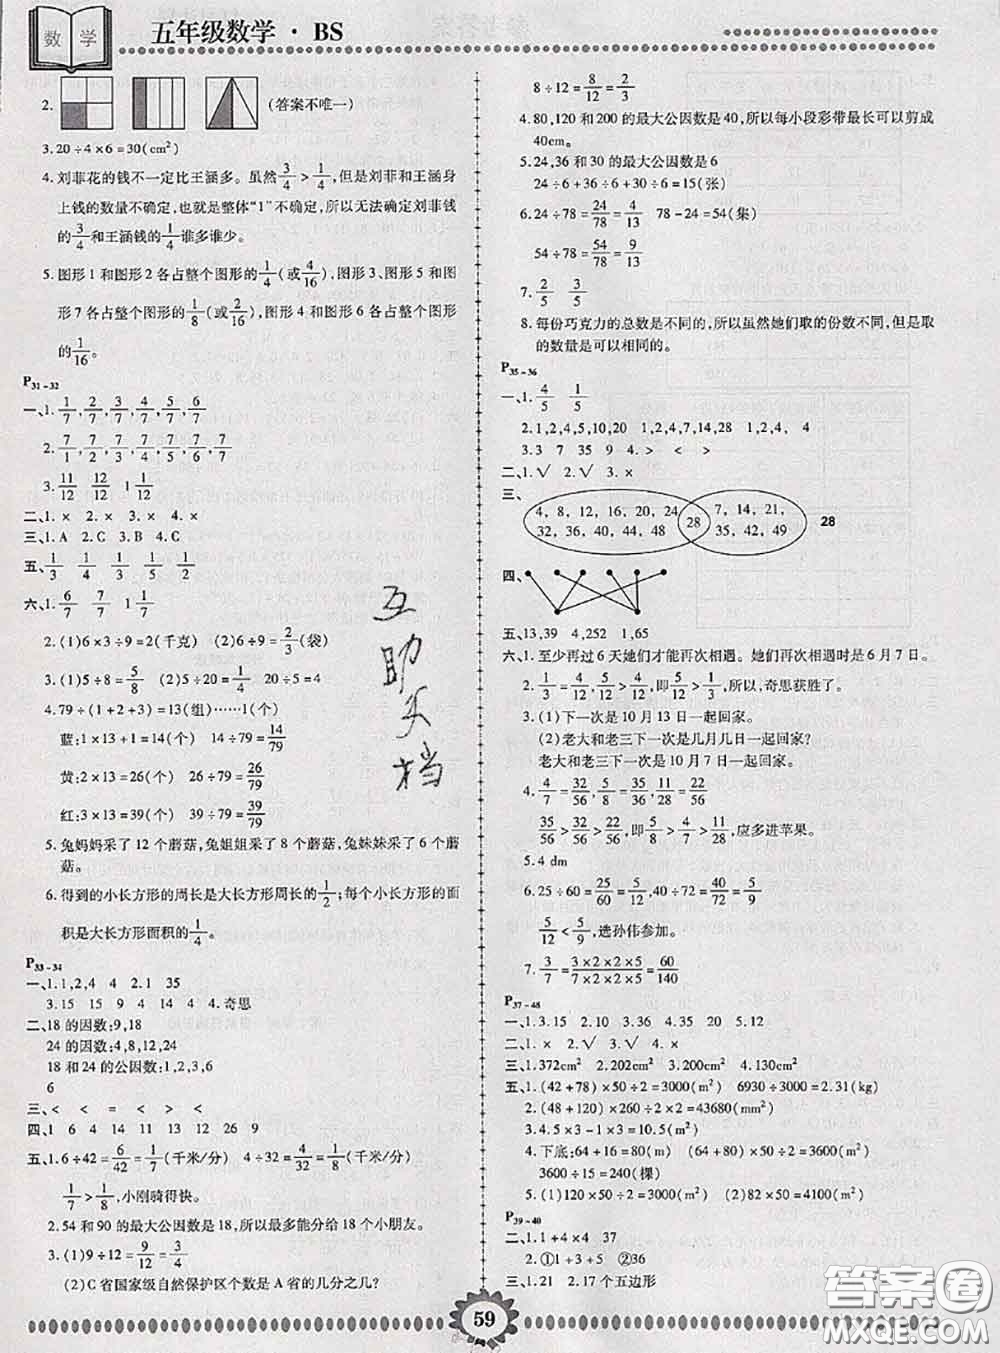 数学
五年级数学·BS
2. (答案不唯一)
3.20÷4×6=30(cm²)
4.刘菲花的钱不一定比王涵多。虽然3/4>1/4,但是刘菲和王涵身
上钱的数量不确定,也就是整体“1”不确定,所以无法确定刘菲钱
的3/4和王涵钱的1/4谁多谁少。
5.图形1和图形2各占整个图形的1/4(或4/16),图形3、图形5和图
形7各占整个图形的1/8(或2/16),图形4和图形6各占整个图形
的1/16。
P31-32
一、1. 1/7,2/7,3/7,4/7,5/7,6/7
2. 7/1,7/2,7/3,7/4,7/5,7/6,7/7
3. 11/12 12/12 1 1/12
二、1.× 2.× 3.× 4.×
三、1.A 2.C 3.B 4.C
五、1/3 1/4 1/3 1/5 1/2
六、1. 6/7 7/7 1 1/7
2.(1)6×3÷9=2(千克) (2)6÷9=2/3(袋)
3.(1)5÷8=5/8 (2)5÷20=1/4 20÷5=4
4.79÷(1+2+3)=13(组)……1(个)
蓝:1×13+1=14(个) 14÷79=14/79
黄:2×13=26(个) 26÷79=26/79
红:3×13=39(个) 39÷79=39/79
5.兔妈妈采了12个蘑菇,兔姐姐采了8个蘑菇,兔妹妹采了6个蘑
菇。
6.得到的小长方形的周长是大长方形周长的1/2;每个小长方形的面
积是大长方形面积的1/4。
P33-34
一、1.1,2,4 4 2.1 35
3.15 15 9 14 4 4.奇思
二、18的因数:9,18
24的因数:4,8,12,24
18和24的公因数:1,2,3,6
6
三、< < > > < >
四、1 6 4 14 11 13 12 26 9
五、1.6÷42=6/42=1/7(千米/分) 4÷32=4/32=1/8(千米/分)
1/7>1/8,小刚骑得快。
2.54和90的最大公因数是18,所以最多能分给18个小朋友。
3.(1)9÷12=9/12=3/4
(2)C省国家级自然保护区个数是A省的几分之几?
8÷12=8/12=2/3
4.80,120和200的最大公因数是40,所以每小段彩带最长可以剪成
40cm。
5.24,36和30的最大公因数是6
24÷6+36÷6+30÷6=15(张)
6.24÷78=24/78=4/13 78-24=54(集)
54÷78=54/78=9/13
7. 2/5 3/5
8.每份巧克力的总数是不同的,所以虽然她们取的份数不同,但是取
的数量是可以相同的。
P35-36
一、1. 4/5 1/5
2.1,2,4,5,10,20 1,2,4,7,14,28 1,2,4, 4
3.3 7 35 9 4.> < >
二、1.√ 2.√ 3.×
三、
4,8,12,16,20,24
32,36,40,44,48
28
7,14,21,
35,42,49
28
四、
五、13,39 4,252 1,65
六、1.至少再过6天她们才能再次相遇。她们再次相遇时是6月7日。
2. 1/3=4/12,5/12>4/12,即5/12>1/3,所以,奇思获胜了。
3.(1)下一次是10月13日一起回家。
(2)老大和老三下一次是几月几日一起回家?
老大和老三下一次是10月7日一起回家。
4. 4/7=32/56,5/8=35/56,11/28=22/56
35/56>32/56>22/56,即5/8>4/7>11/28,应多进苹果。
5.4 dm
6.25÷60=25/60=5/12,40÷72=40/72=5/9
5/12<5/9,选孙伟参加。
7. 3/7=3×2×2×5/7×2×2×5=60/140
P37-48
一、1.3.15 2.10 3.36 4.35 5.12
二、1.× 2.√ 3.√ 4.×
三、1.372cm² 2.202cm² 3.60cm² 4.130cm²
五、1.(42+78)×50÷2=3000(m²) 6930÷3000=2.31(kg)
2.(48+120)×260÷2×2=43680(mm²)
3.4.5×3-1×3=10.5(m²)
4.下底:64+16=80(m) (64+80)×50÷2=3600(m²)
3600÷15=240(棵)
5.(1)120×50÷2=3000(m²) (2)82×50=4100(m²)
P39-40
二、1.1+4×4 37
2.①1+3+5 ②36
三、1.21 2.17个五边形
59
互
助
文
档
答案圈
MXQE.COM